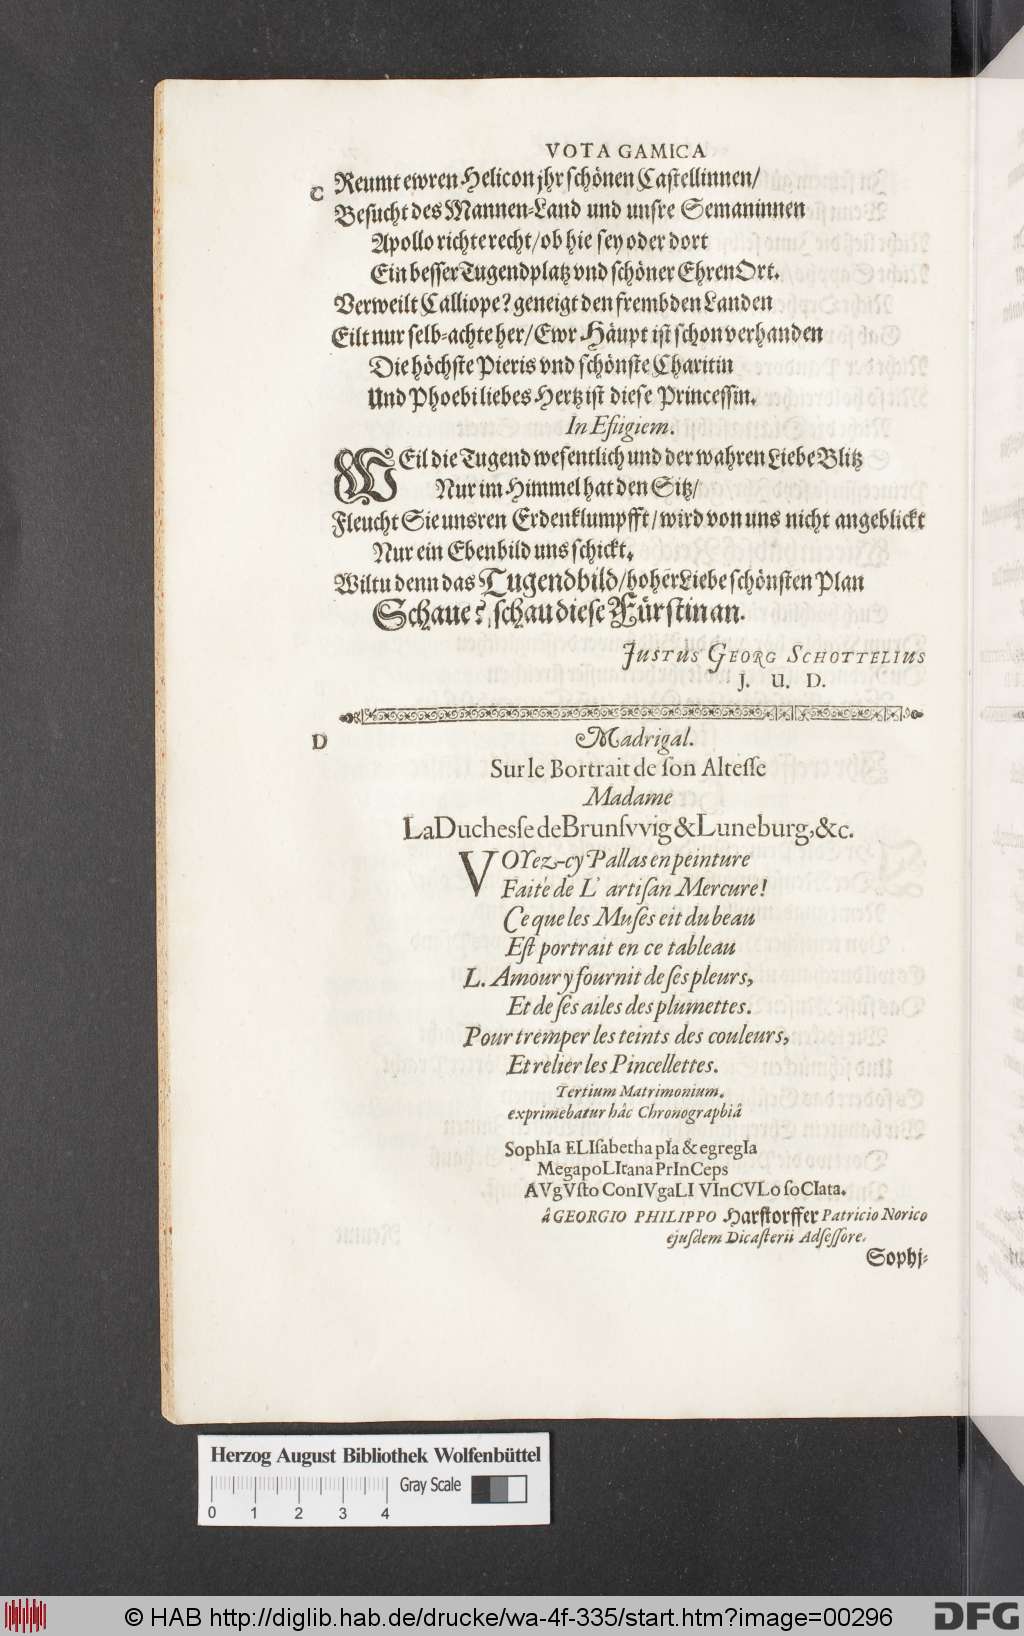 VOTA GAMICA
C Reumt ewren Helicon jhr schönen Castellinnen/
Besucht des Mannen-Land und unsre Semaninnen
Apollo richte recht/ob hie sey oder dort
Ein besser Tugendplatz vnd schöner EhrenOrt.
Verweilt Calliope? geneigt den frembden Landen
Eilt nur selb-achte her/Ewr Häupt ist schon verhanden
Die höchste Pieris vnd schönste Charitin
Und Phoebi liebes Hertz ist diese Princessin.
In Efigiem.
WEil die Tugend wesentlich und der wahren Liebe Blitz
Nur im Himmel hat den Sitz/
Fleucht Sie unsren Erdenklumpfft/wird von uns nicht angeblickt
Nur ein Ebenbild uns schickt.
Wiltu denn das Tugendbild/hoher Liebe schönsten Plan
Schaue? schau diese Fürstin an.
JUSTUS GEORG SCHOTTELIUS
J. U. D.
D Madrigal.
Sur le Bortrait de ſon Alteſſe
Madame
La Ducheſſe de Brunſvvig & Luneburg, &c.
VOYez-cy Pallas en peinture
Faite de L' artiſan Mercure!
Ce que les Muſes eit du beau
Eſt portrait en ce tableau
L. Amour y fournit de ſes pleurs,
Et de ſes ailes des plumettes.
Pour tremper les teints des couleurs,
Et relier les Pincellettes.
Tertium Matrimonium.
exprimebatur hâc Chronographiâ
SophIa ELIſabetha pIa & egregIa
MegapoLItana PrInCeps
AVgVſto ConIVgaLI VInCVLo ſoCIata.
â GEORGIO PHILIPPO Harstorffer Patricio Norico
ejuſdem Dicaſterii Adſeſſore.
Sophj-
Herzog August Bibliothek Wolfenbüttel
Gray Scale
0 1 2 3 4
© HAB http://diglib.hab.de/drucke/wa-4f-335/start.htm?image=00296
DFG